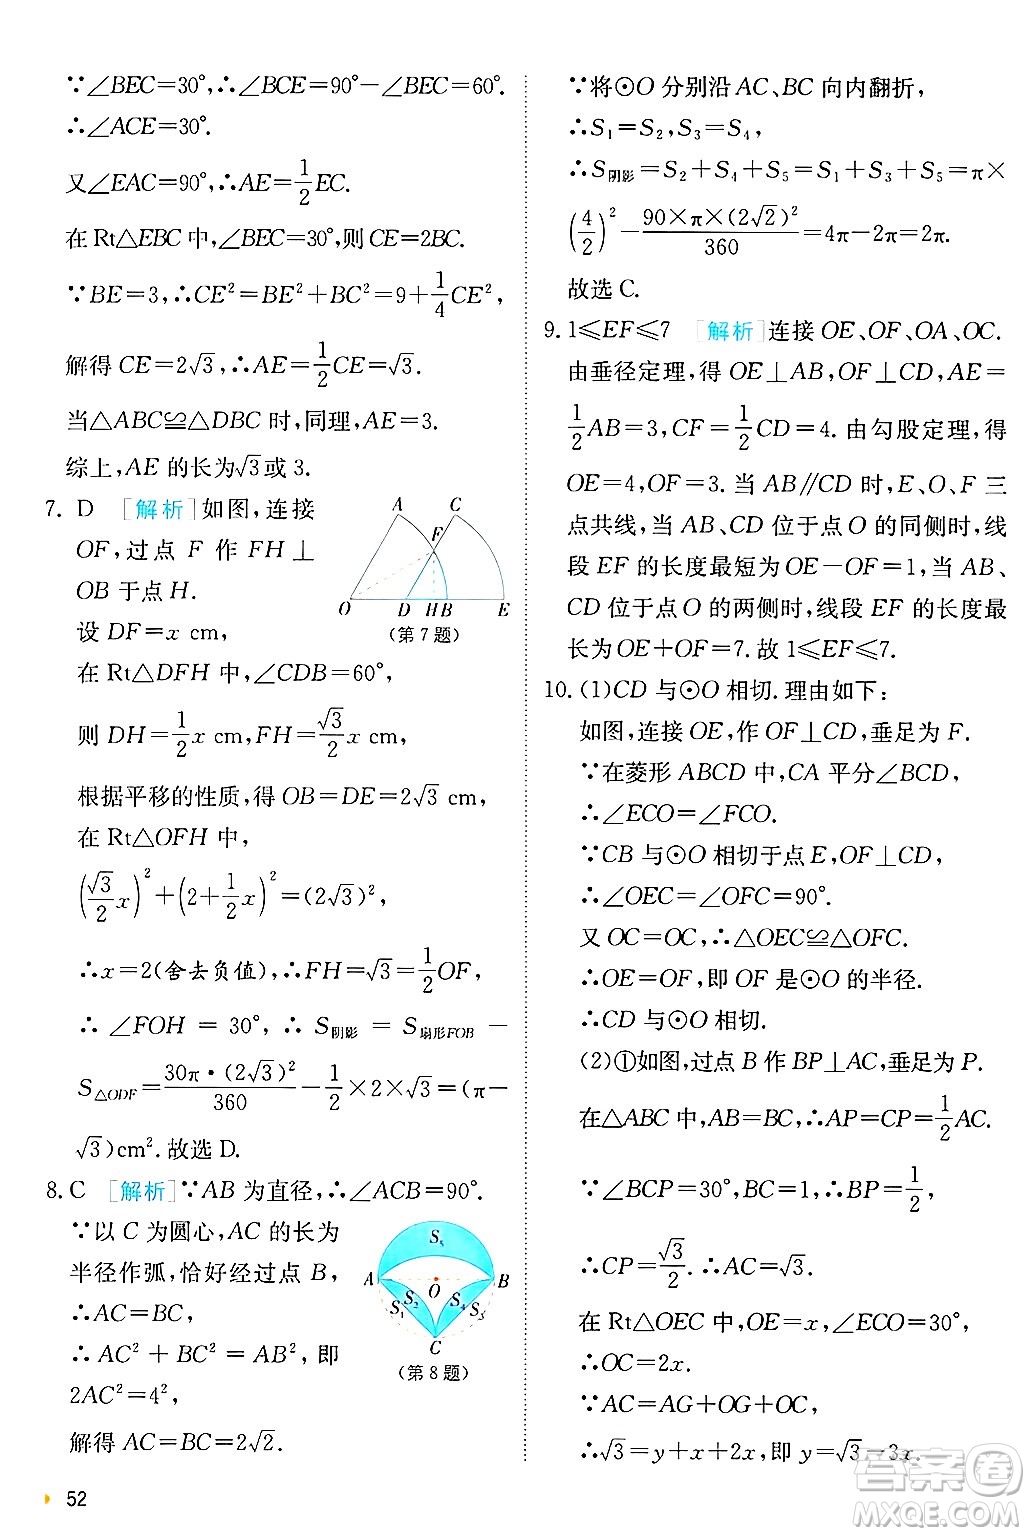 ∵∠BEC=30°,∴∠BCE=90°-∠BEC=60°.
∴∠ACE=30°.
又∠EAC=90°,∴AE=1/2EC.
在 Rt△EBC 中,∠BEC=30°,则 CE=2BC.
∵BE=3,∴CE²=BE²+BC²=9+1/4CE²,
解得 CE=2√3,∴AE=1/2CE=√3.
当△ABC≌△DBC 时,同理,AE=3.
综上,AE 的长为√3或 3.
7. D [解析]如图,连接
OF,过点 F 作 FH⊥
OB 于点 H.
设 DF=x cm,
A C F O D H B E
(第 7 题)
在 Rt△DFH 中,∠CDB=60°,
则 DH=1/2x cm,FH=√3/2x cm,
根据平移的性质,得 OB=DE=2√3 cm,
在 Rt△OFH 中,
(√3/2x)²+(2+1/2x)²=(2√3)²,
∴x=2(舍去负值),∴FH=√3=1/2OF,
∴∠FOH=30°,∴S阴影=S扇形FOB-
S△ODF=30π·(2√3)²/360-1/2×2×√3=(π-
√3)cm².故选 D.
8. C [解析]∵AB 为直径,∴∠ACB=90°.
∵以 C 为圆心,AC 的长为
半径作弧,恰好经过点 B,
∴AC=BC,
∴AC²+BC²=AB²,即
2AC²=4²,
解得 AC=BC=2√2.
S₅ A O B S₁ S₂ S₄ S₃ C
(第 8 题)
52
∵将⊙O 分别沿 AC、BC 向内翻折,
∴S₁=S₂,S₃=S₄,
∴S阴影=S₂+S₄+S₅=S₁+S₃+S₅=π×
(4/2)²-90×π×(2√2)²/360=4π-2π=2π.
故选 C.
9. 1≤EF≤7 [解析]连接 OE、OF、OA、OC.
由垂径定理,得 OE⊥AB,OF⊥CD,AE=
1/2AB=3,CF=1/2CD=4.由勾股定理,得
OE=4,OF=3.当 AB∥CD 时,E、O、F 三
点共线,当 AB、CD 位于点 O 的同侧时,线
段 EF 的长度最短为 OE-OF=1,当 AB、
CD 位于点 O 的两侧时,线段 EF 的长度最
长为 OE+OF=7.故 1≤EF≤7.
10. (1)CD 与⊙O 相切.理由如下:
如图,连接 OE,作 OF⊥CD,垂足为 F.
∵在菱形 ABCD 中,CA 平分∠BCD,
∴∠ECO=∠FCO.
∵CB 与⊙O 相切于点 E,OF⊥CD,
∴∠OEC=∠OFC=90°.
又 OC=OC,∴△OEC≌△OFC.
∴OE=OF,即 OF 是⊙O 的半径.
∴CD 与⊙O 相切.
(2)①如图,过点 B 作 BP⊥AC,垂足为 P.
在△ABC 中,AB=BC,∴AP=CP=1/2AC.
∵∠BCP=30°,BC=1,∴BP=1/2,
∴CP=√3/2.∴AC=√3.
在 Rt△OEC 中,OE=x,∠ECO=30°,
∴OC=2x.
∵AC=AG+OG+OC,
∴√3=y+x+2x,即 y=√3-3x.
答案圈
MXQE.COM